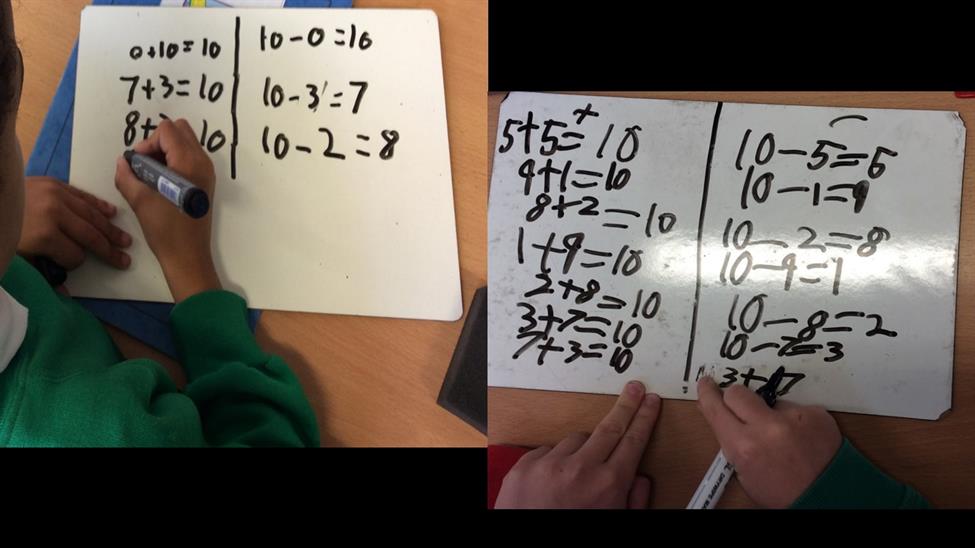 0+10=10
7+3=10
8+ 10
10-0=10
10-3=7
10-2=8
+
5+5=10
9+1=10
8+2=10
1+9=10
2+8=10
3+7=10
7+3=10
10-5=5
10-1=9
10-2=8
10-9=1
10-8=2
10-7=3
3+ 7